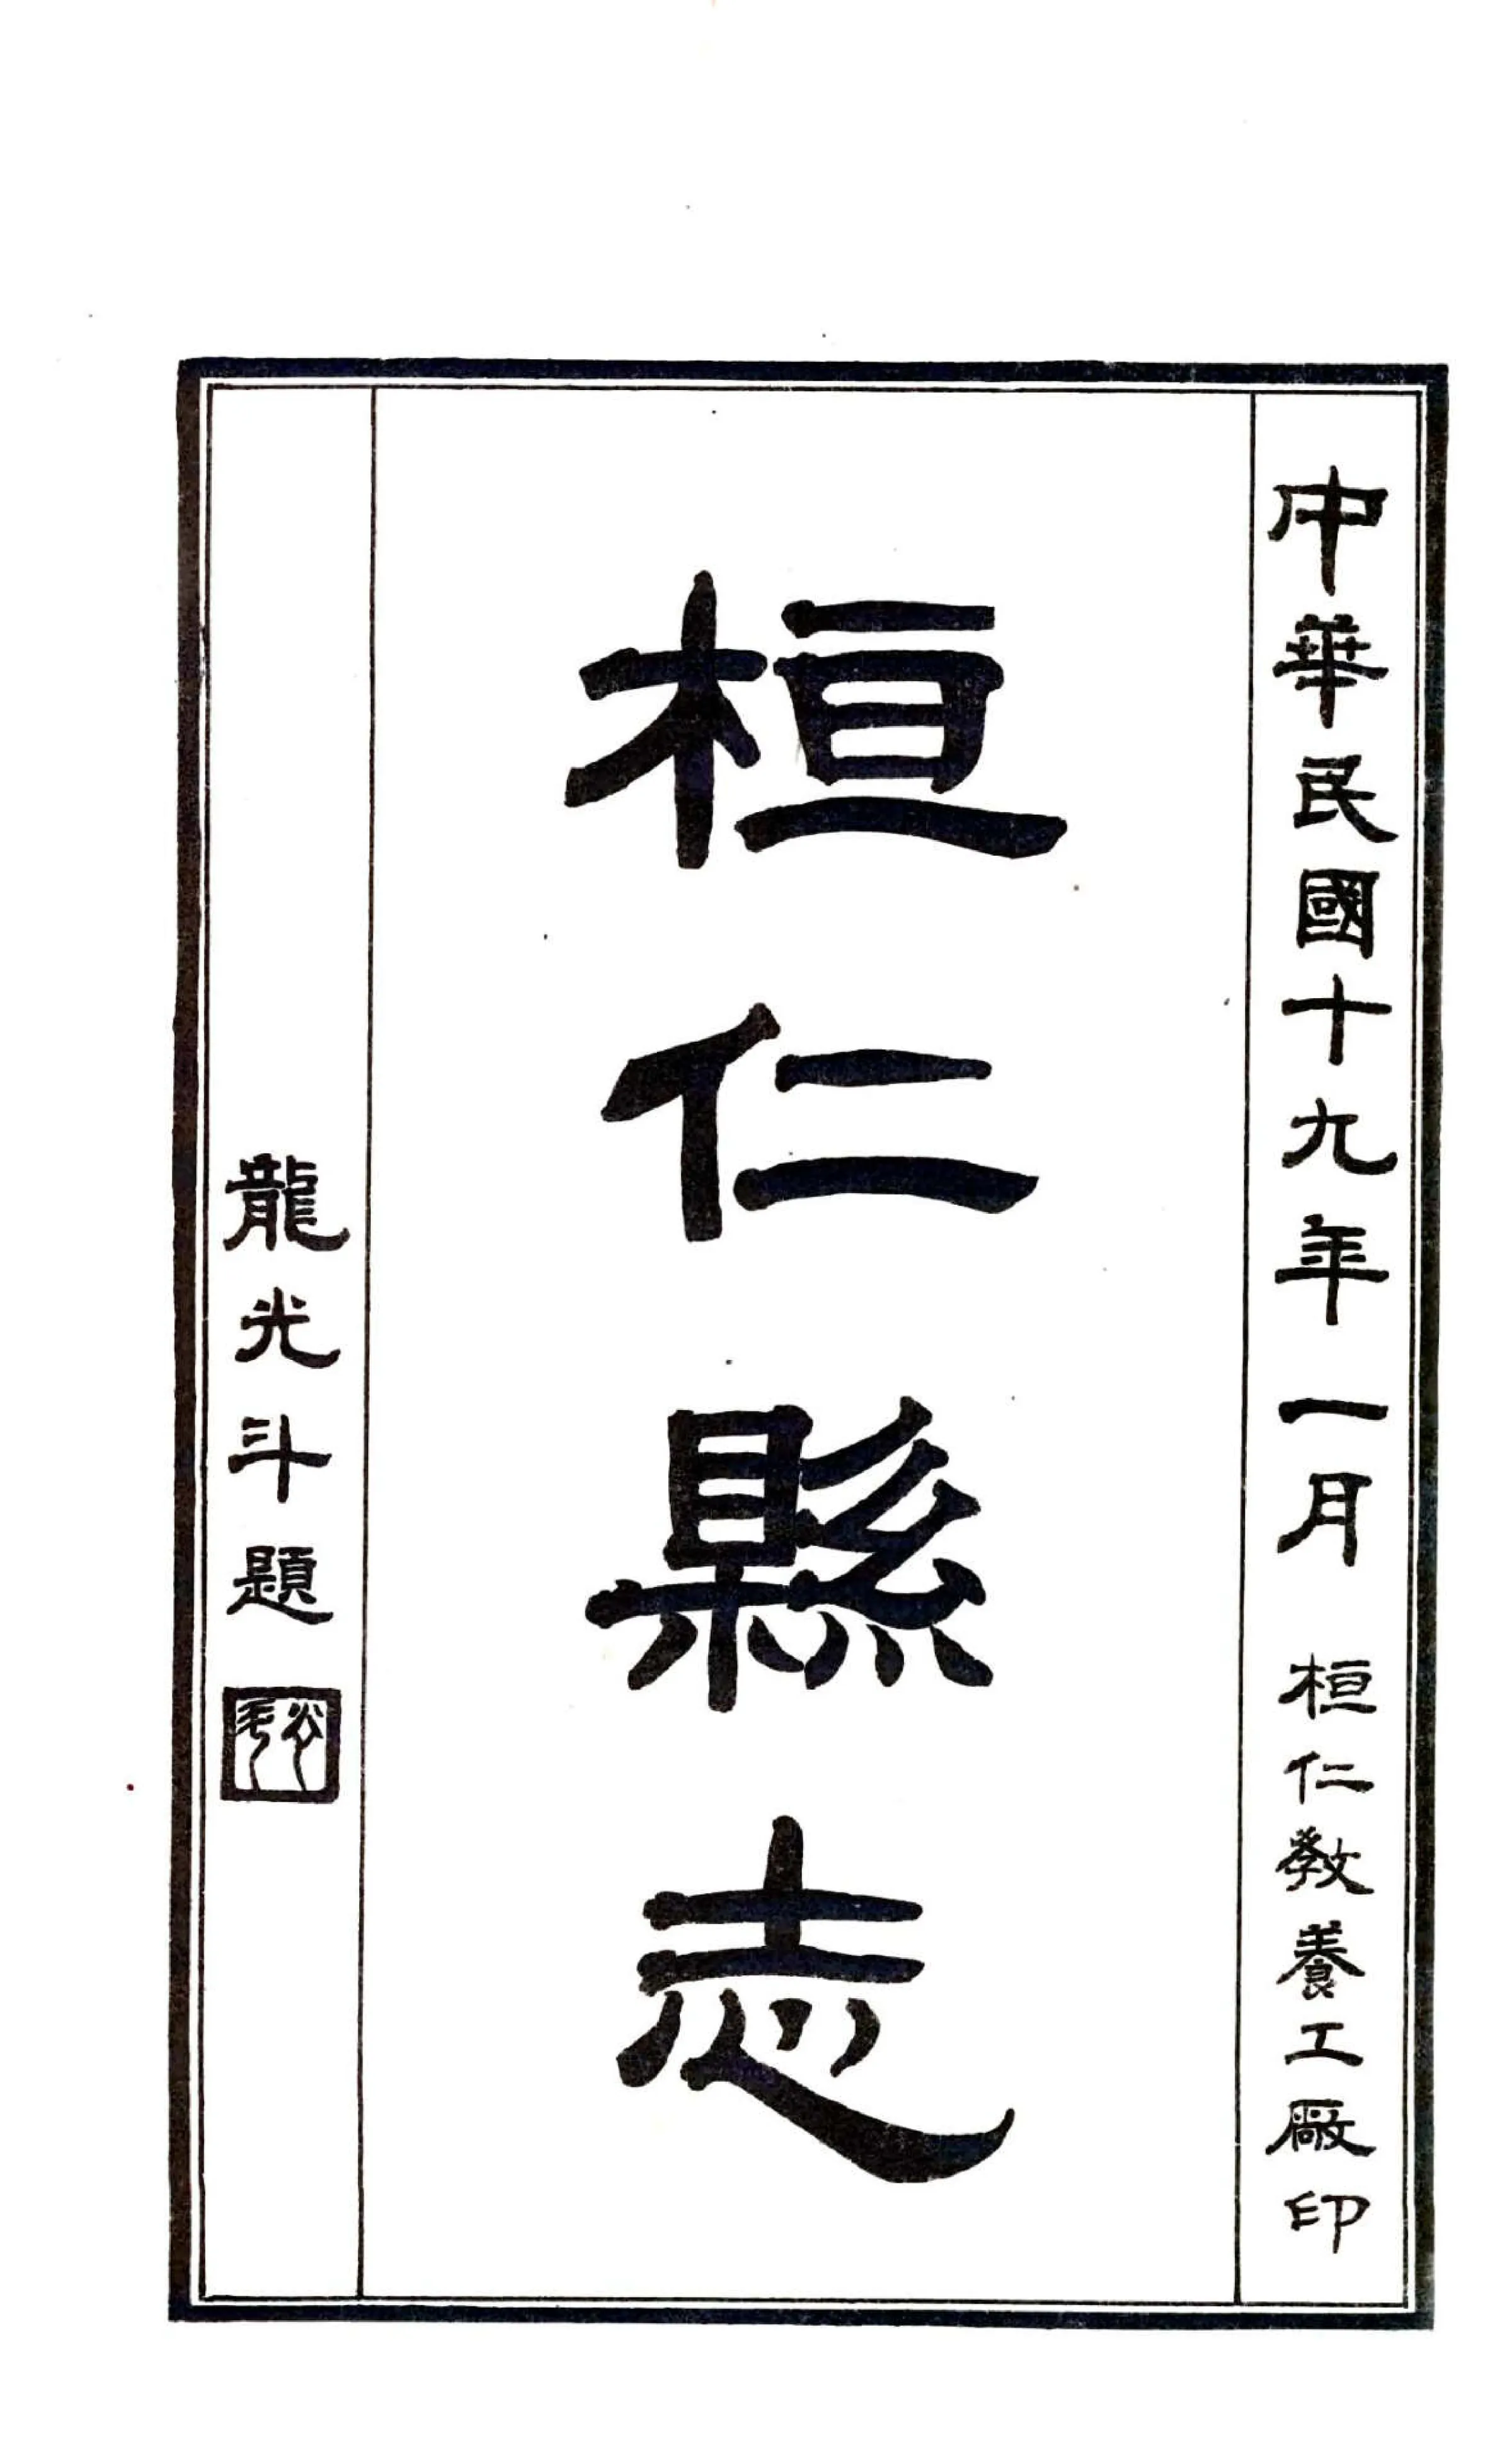 中華民國十九年一月 桓仁教養工廠印
桓仁縣志
龍光斗題